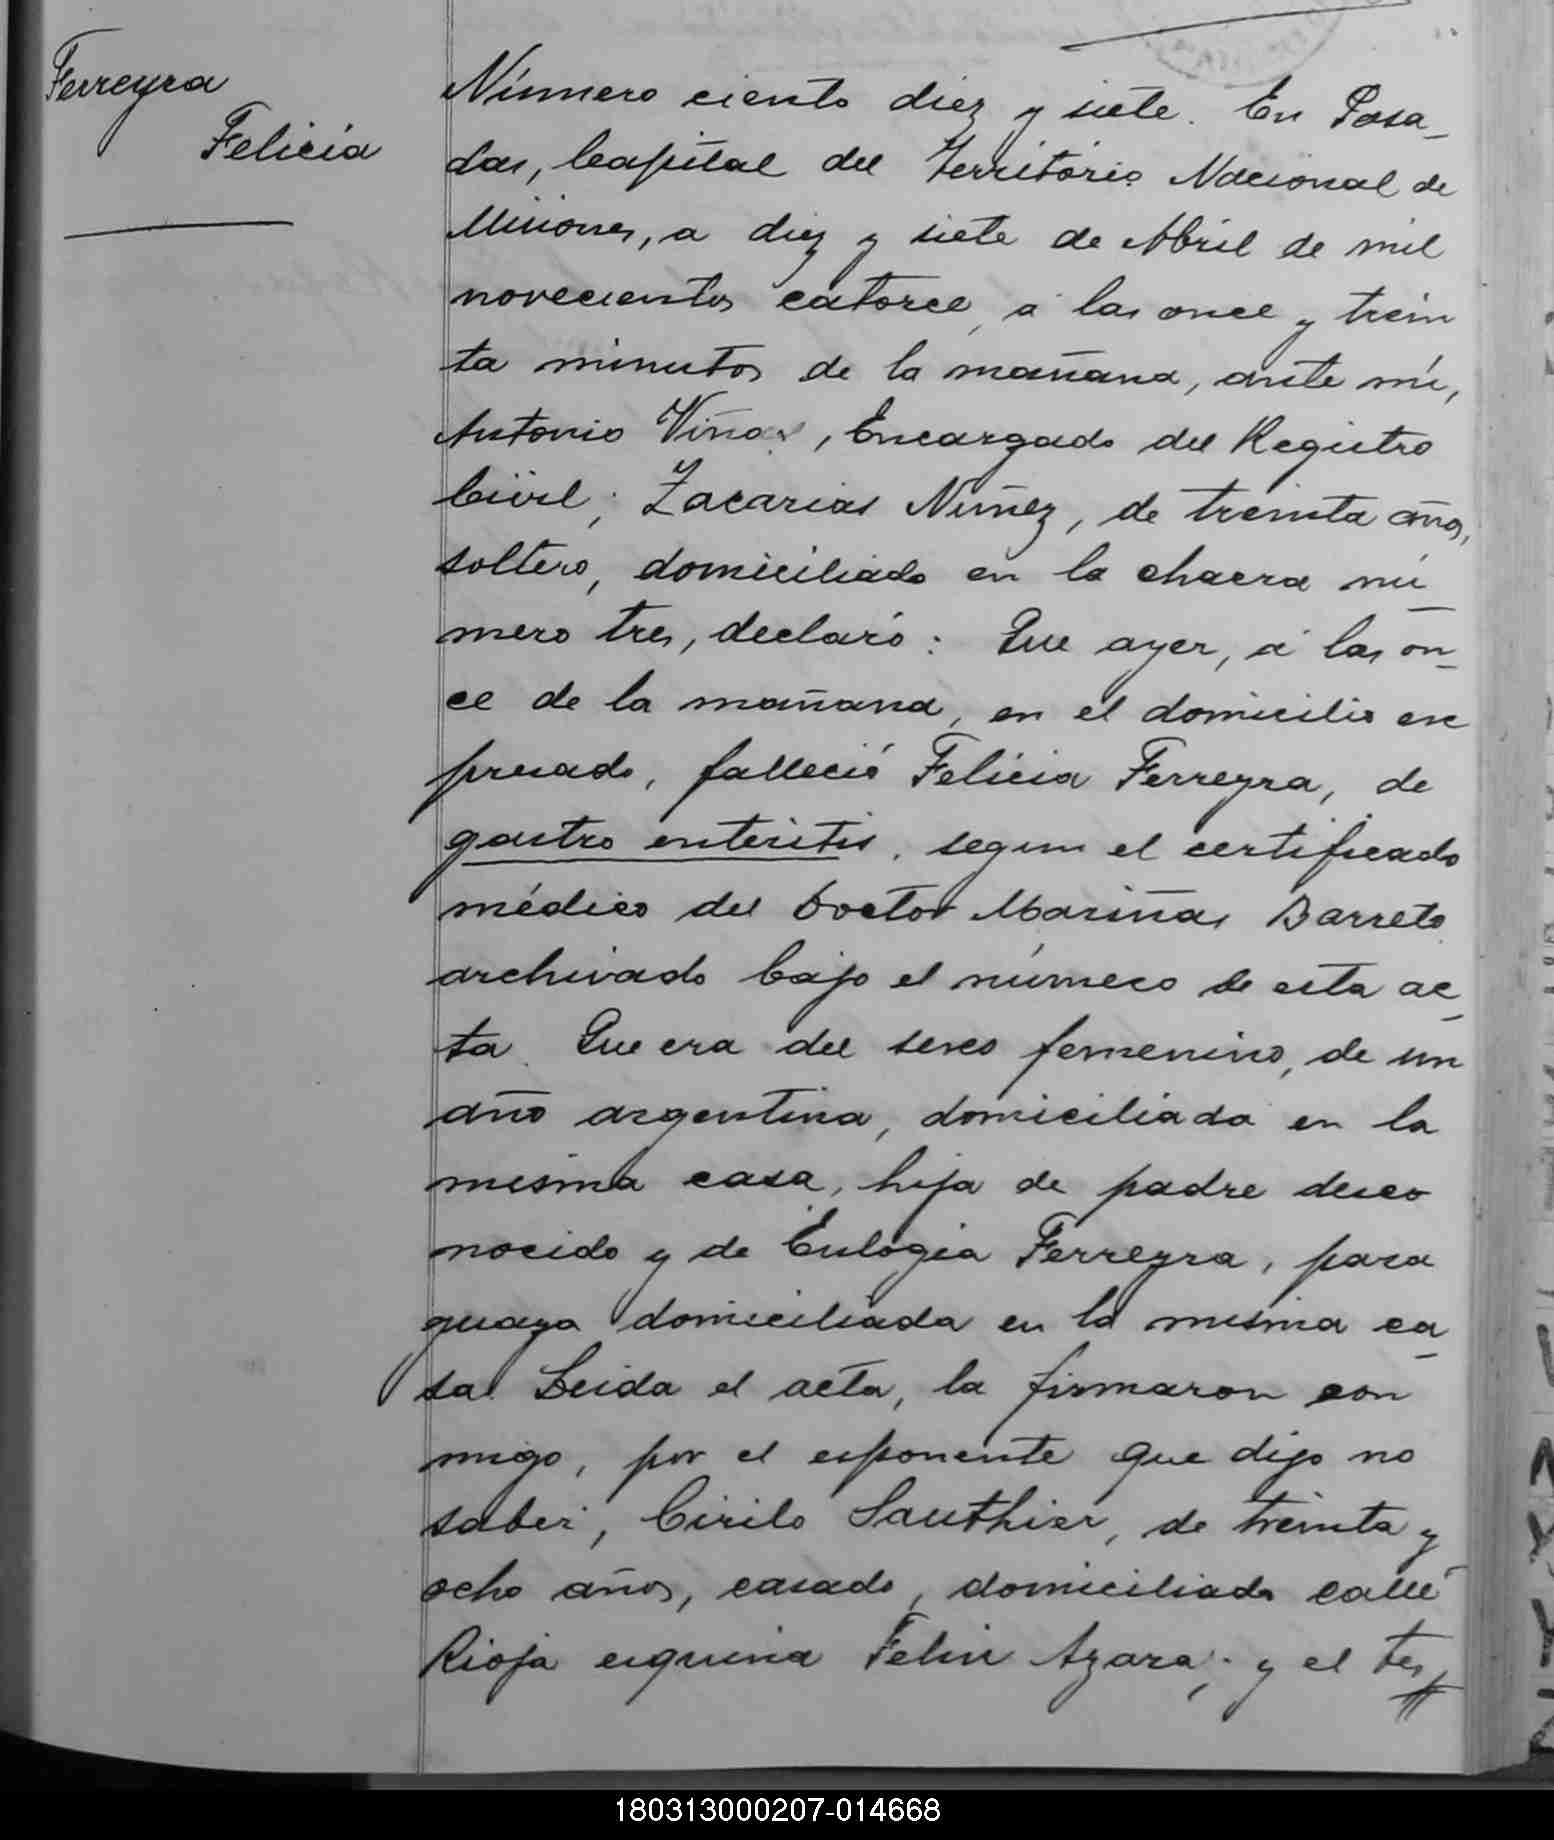 Ferreyra
Felicia
Número ciento diez y siete. En Posa-
das, Capital del Territorio Nacional de
Misiones, a diez y siete de Abril de mil
novecientos catorce, á las once y trein
ta minutos de la mañana, ante mí,
Antonio Viñas, Encargado del Registro
Civil; Zacarias Nuñez, de treinta años,
soltero, domiciliado en la chacra nú-
mero tres, declaró: Que ayer, á las on-
ce de la mañana, en el domicilio ex
presado, falleció Felicia Ferreyra, de
gastro enteritis, segun el certificado
médico del Doctor Mariñas Barreto
archivado bajo el número de esta ac-
ta. Que era del sexo femenino, de un
año argentina, domiciliada en la
misma casa, hija de padre desco
nocido y de Eulogia Ferreyra, para
guaya domiciliada en la misma ca-
sa. Leida el acta, la firmaron con
migo, por el exponente que dijo no
saber, Cirilo Sauthier, de treinta y
ocho años, casado, domiciliado calle
Rioja esquina Felix Azara; y el tes
180313000207-014668